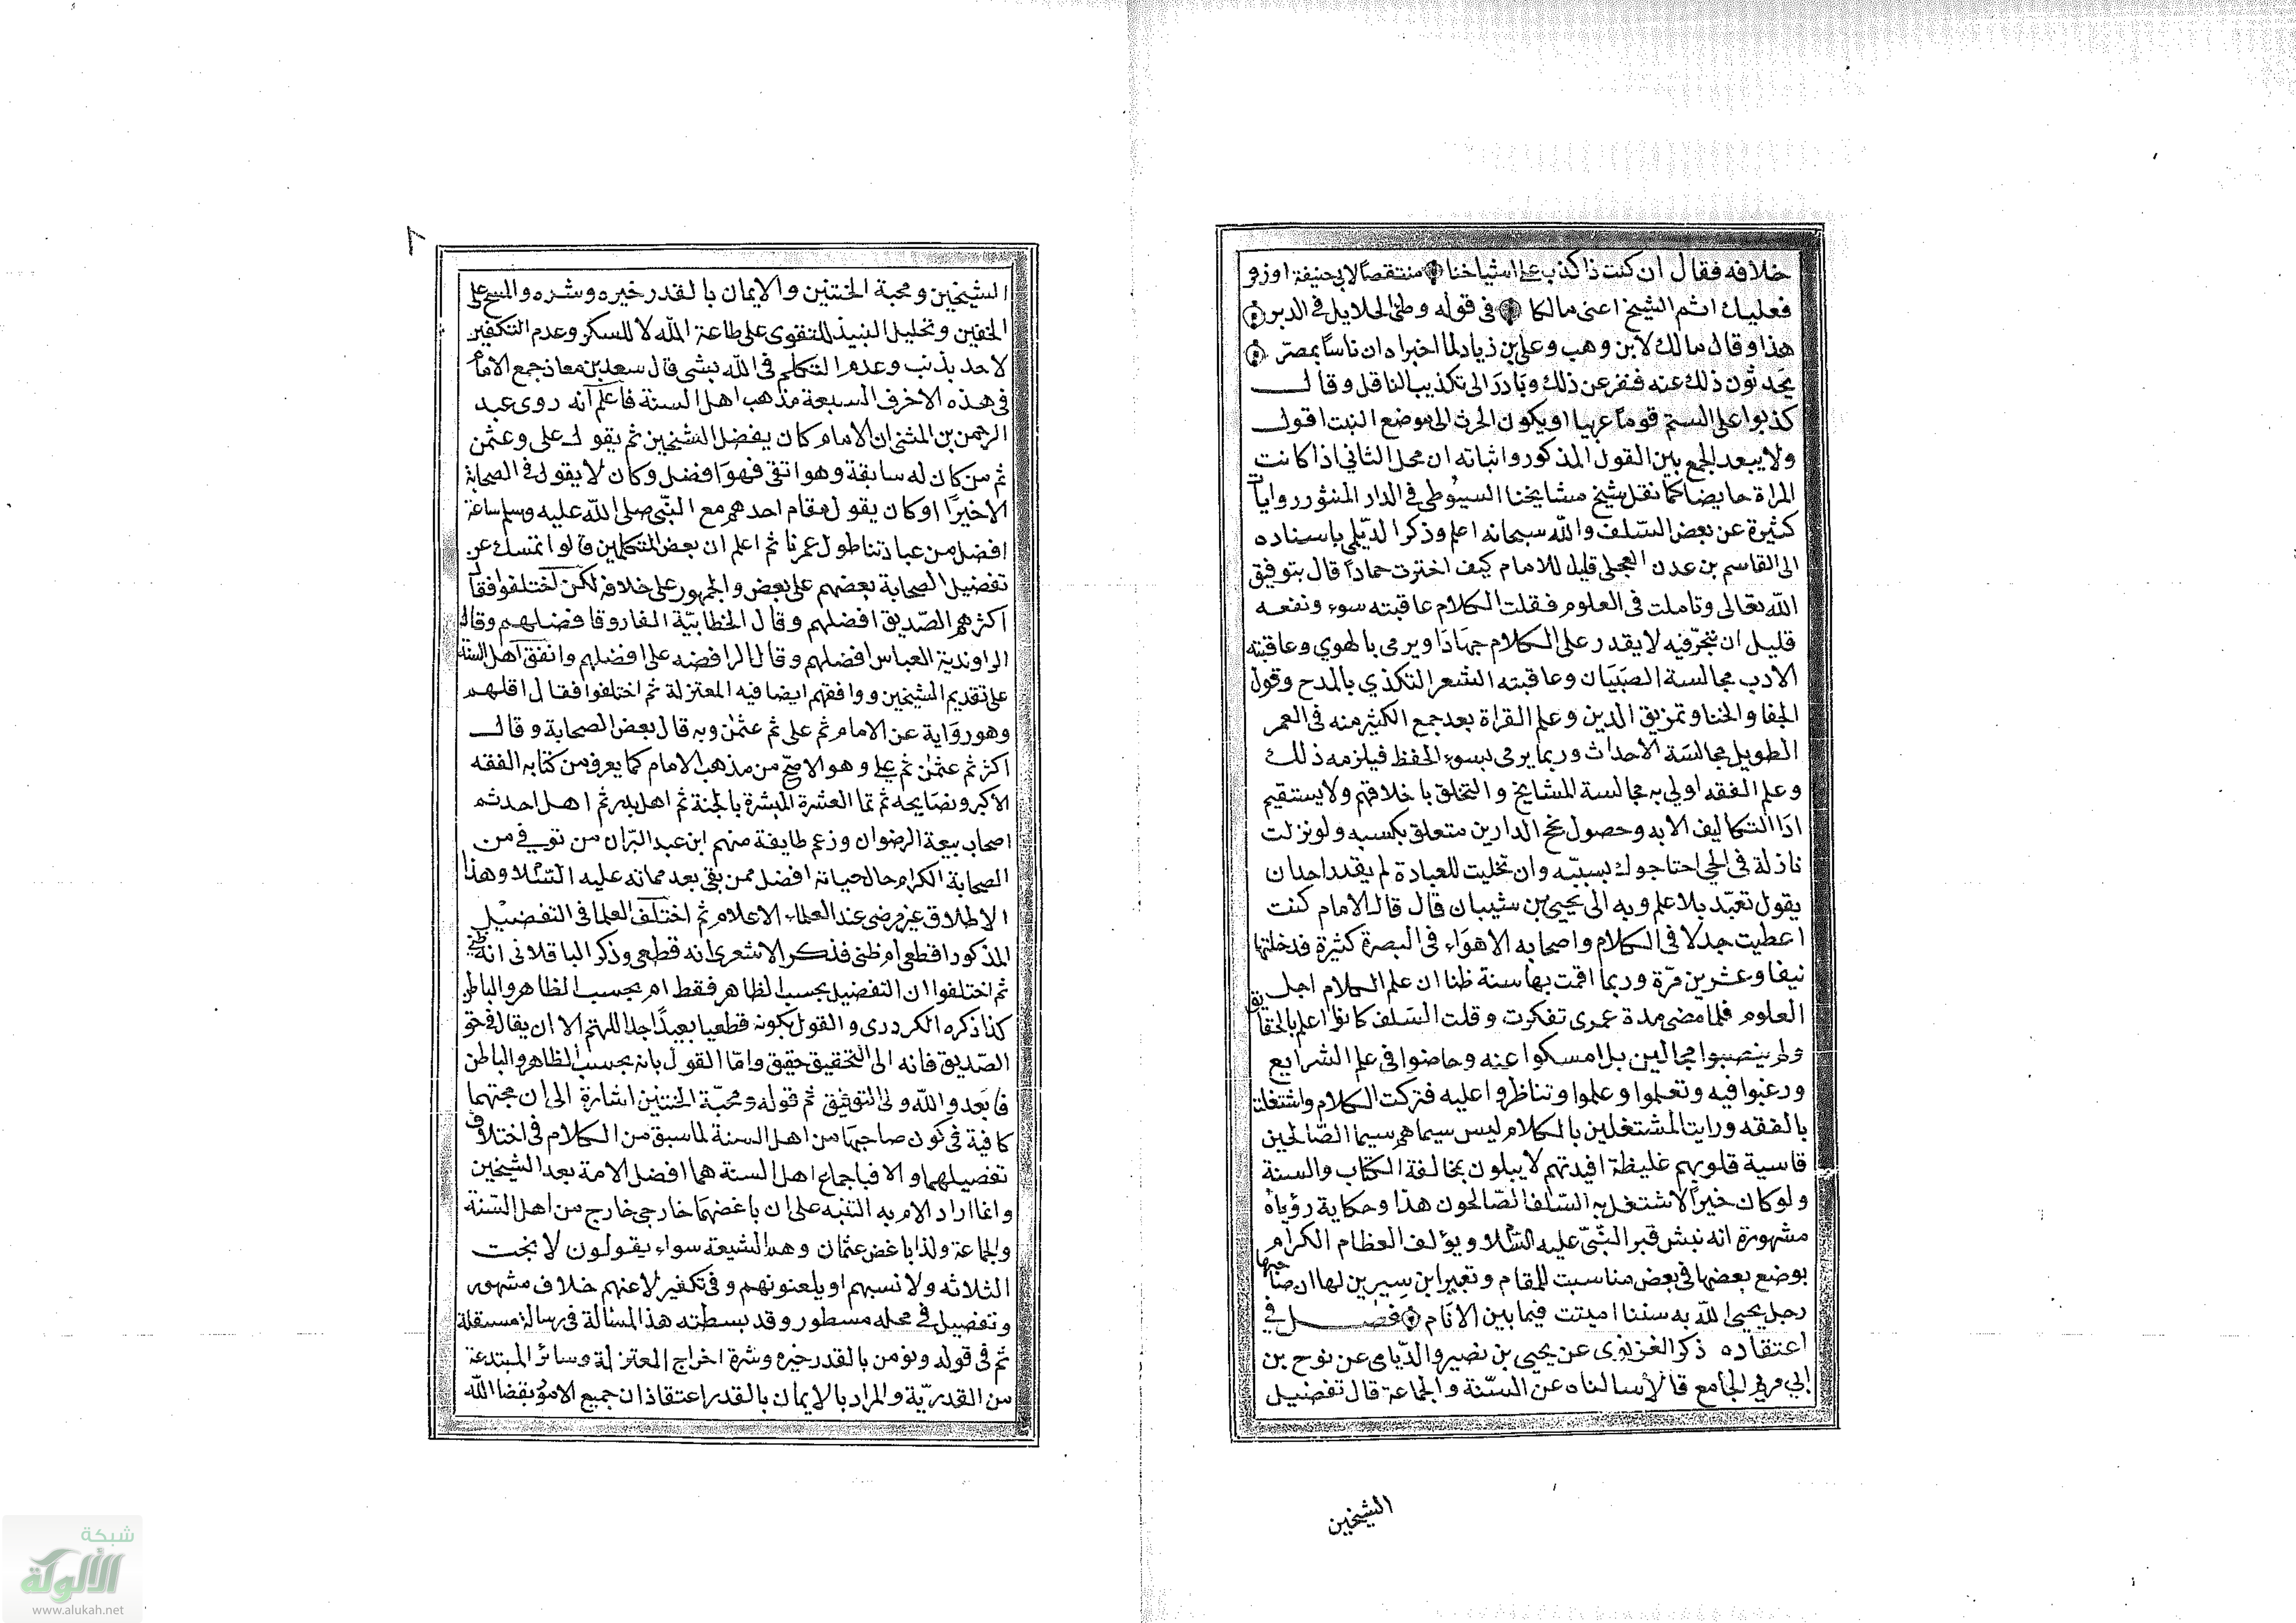 خلافه فقال ان كنت ذا كذب على اشياخنا منتقصا لابي حنيفة اوزو
فعليك اثم الشيخ اعنى مالكا في قوله وطئ الحلايل في الدبر
هذا وقال مالك لابن وهب وعلي بن زياد لما اخبراه ان ناسا بمصر
يحدثون ذلك عنه فنفر عن ذلك وبادر الى تكذيب الناقل وقال
كذبوا على الستم قوما عربيا او يكون الحرث الا موضع النبت اقول
ولا يبعد الجمع بين القول المذكور واثباته ان محل الثاني اذا كانت
المراة حايضا كما نقل شيخ مشايخنا السيوطي في الدار المنثور روايات
كثيرة عن بعض السلف والله سبحانه اعلم وذكر الديلمي باسناده
الى القاسم بن عدن العجلي قليل للامام كيف اخترت حمادا قال بتوفيق
الله تعالى وتاملت في العلوم فقلت الكلام عاقبته سوء ونفعه
قليل ان تبحر فيه لا يقدر على الكلام جهادا ويرمى بالهوي وعاقبته
الادب مجالسة الصبيان وعاقبته الشعر التكدي بالمدح وقول
الجفا والخنا وتمزيق الدين وعلم القراة بعد جمع الكثير منه في العمر
الطويل مجالسة الاحداث وربما يرمى بسوء الحفظ فيلزمه ذلك
وعلم الفقه اولي به مجالسة المشايخ والتخلق باخلاقهم ولا يستقيم
اذا التكاليف الا به وحصول نجح الدارين متعلق بكسبه ولو نزلت
نازلة في الحي احتاجوك بسببه وان تخليت للعبادة لم يقدر احد ان
يقول تعبد بلا علم وبه الى يحيى بن شيبان قال قال الامام كنت
اعطيت جدلا في الكلام واصحابه الاهواء في البصرة كثيرة فدخلتها
نيفا وعشرين مرة وربما اقمت بها سنة ظنا ان علم الكلام اجل
العلوم فلما مضى مدة عمرى تفكرت وقلت السلف كانوا اعلم بالحقايق
ولم ينصبوا مجالين بل امسكوا عنه وخاضوا في علم الشرايع
ورغبوا فيه وتعلموا وعلموا وتناظروا عليه فتركت الكلام واشتغلت
بالفقه ورايت المشتغلين بالكلام ليس سيماهم سيما الصالحين
قاسية قلوبهم غليظة افيدتهم لا يبلون بمخالفة الكتاب والسنة
ولو كان خيرا لاشتغل به السلف الصالحون هذا وحكاية رؤياه
مشهورة انه نبش قبر النبي عليه السلام ويؤلف العظام الكرام
بوضع بعضها في بعض مناسبت للمقام وتعبير ابن سيرين لها ان صاحبها
رجل يحيى الله به سننا اميتت فيما بين الانام فصل في
اعتقاده ذكر الغزنوى عن يحيى بن نصير والديامى عن نوح بن
ابي مريم الجامع قالا سالناه عن السنة والجماعة قال تفضيل
الشيخين
٦
الشيخين ومحبة الختنين والايمان بالقدر خيره وشره والمسح على
الخفين وتحليل النبيذ للتقوى على طاعة الله لا للسكر وعدم التكفير
لاحد بذنب وعدم التكلم في الله بشى قال سعد بن معاذ جمع الامام
في هذه الاحرف السبعة مذهب اهل السنة فاعلم انه روى عبد
الرحمن بن المثنى ان الامام كان يفضل الشيخين ثم يقول على وعثمن
ثم من كان له سابقة وهو اتقى فهو افضل وكان لا يقول في الصحابة
الا خيرا وكان يقول مقام احدهم مع النبي صلى الله عليه وسلم ساعة
افضل من عبادتنا طول عمرنا ثم اعلم ان بعض المتكلمين قالوا نمتسك عن
تفضيل الصحابة بعضهم على بعض والجمهور على خلافه لكن اختلفوا فقال
اكثرهم الصديق افضلهم وقال الخطابية الفاروق افضلهم وقال
الراوندية العباس افضلهم وقال الرافضه على افضلهم واتفق اهل السنة
على تقديم الشيخين ووافقهم ايضا فيه المعتزلة ثم اختلفوا فقال اقلهم
وهو رواية عن الامام ثم على ثم عثمن وبه قال بعض الصحابة وقال
اكثر ثم عثمن ثم علي وهو الاصح من مذهب الامام كما يعرف من كتابه الفقه
الاكبر ونصايحه ثم تما العشرة المبشرة بالجنة ثم اهل بدر ثم اهل احد ثم
اصحاب بيعة الرضوان وزعم طايفة منهم ابن عبد البر ان من توفي من
الصحابة الكرام حال حياته افضل ممن بقى بعد مماته عليه السلام وهذا
الاطلاق غير مرضى عند العلماء الاعلام ثم اختلف العلما في التفضيل
المذكور اقطعى ام ظنى فذكر الاشعرى انه قطعى وذكر الباقلانى انه ظني
ثم اختلفوا ان التفضيل بحسب الظاهر فقط ام بحسب الظاهر والباطن
كذا ذكره الكردرى والقول بكونه قطعيا بعيدا جدا اللهم الا ان يقال في حق
الصديق فانه الى التحقيق حقيق واما القول بانه بحسب الظاهر والباطن
فابعد والله ولى التوفيق ثم قوله ومحبة الختنين اشارة الى ان محبتهما
كافية في كون صاحبها من اهل السنة لما سبق من الكلام في اختلاف
تفضيلهما والا فباجماع اهل السنة هما افضل الامة بعد الشيخين
وانما اراد الام به التنبه على ان باغضهما خارجى خارج من اهل السنة
والجماعة ولذا باغض عثمان وهم الشيعة سواء يقولون لا نحب
الثلاثه ولا نسبهم او يلعنونهم وفي تكفير لاعنهم خلاف مشهور
وتفضيل في محله مسطور وقد بسطته هذا المسالة في رسالة مستقلة
ثم في قوله ونومن بالقدر خيره وشرة اخراج المعتزلة وسائر المبتدعة
من القدرية والمراد بالايمان بالقدر اعتقاد ان جميع الامور بقضا الله
شبكة
الألوكة
www.alukah.net